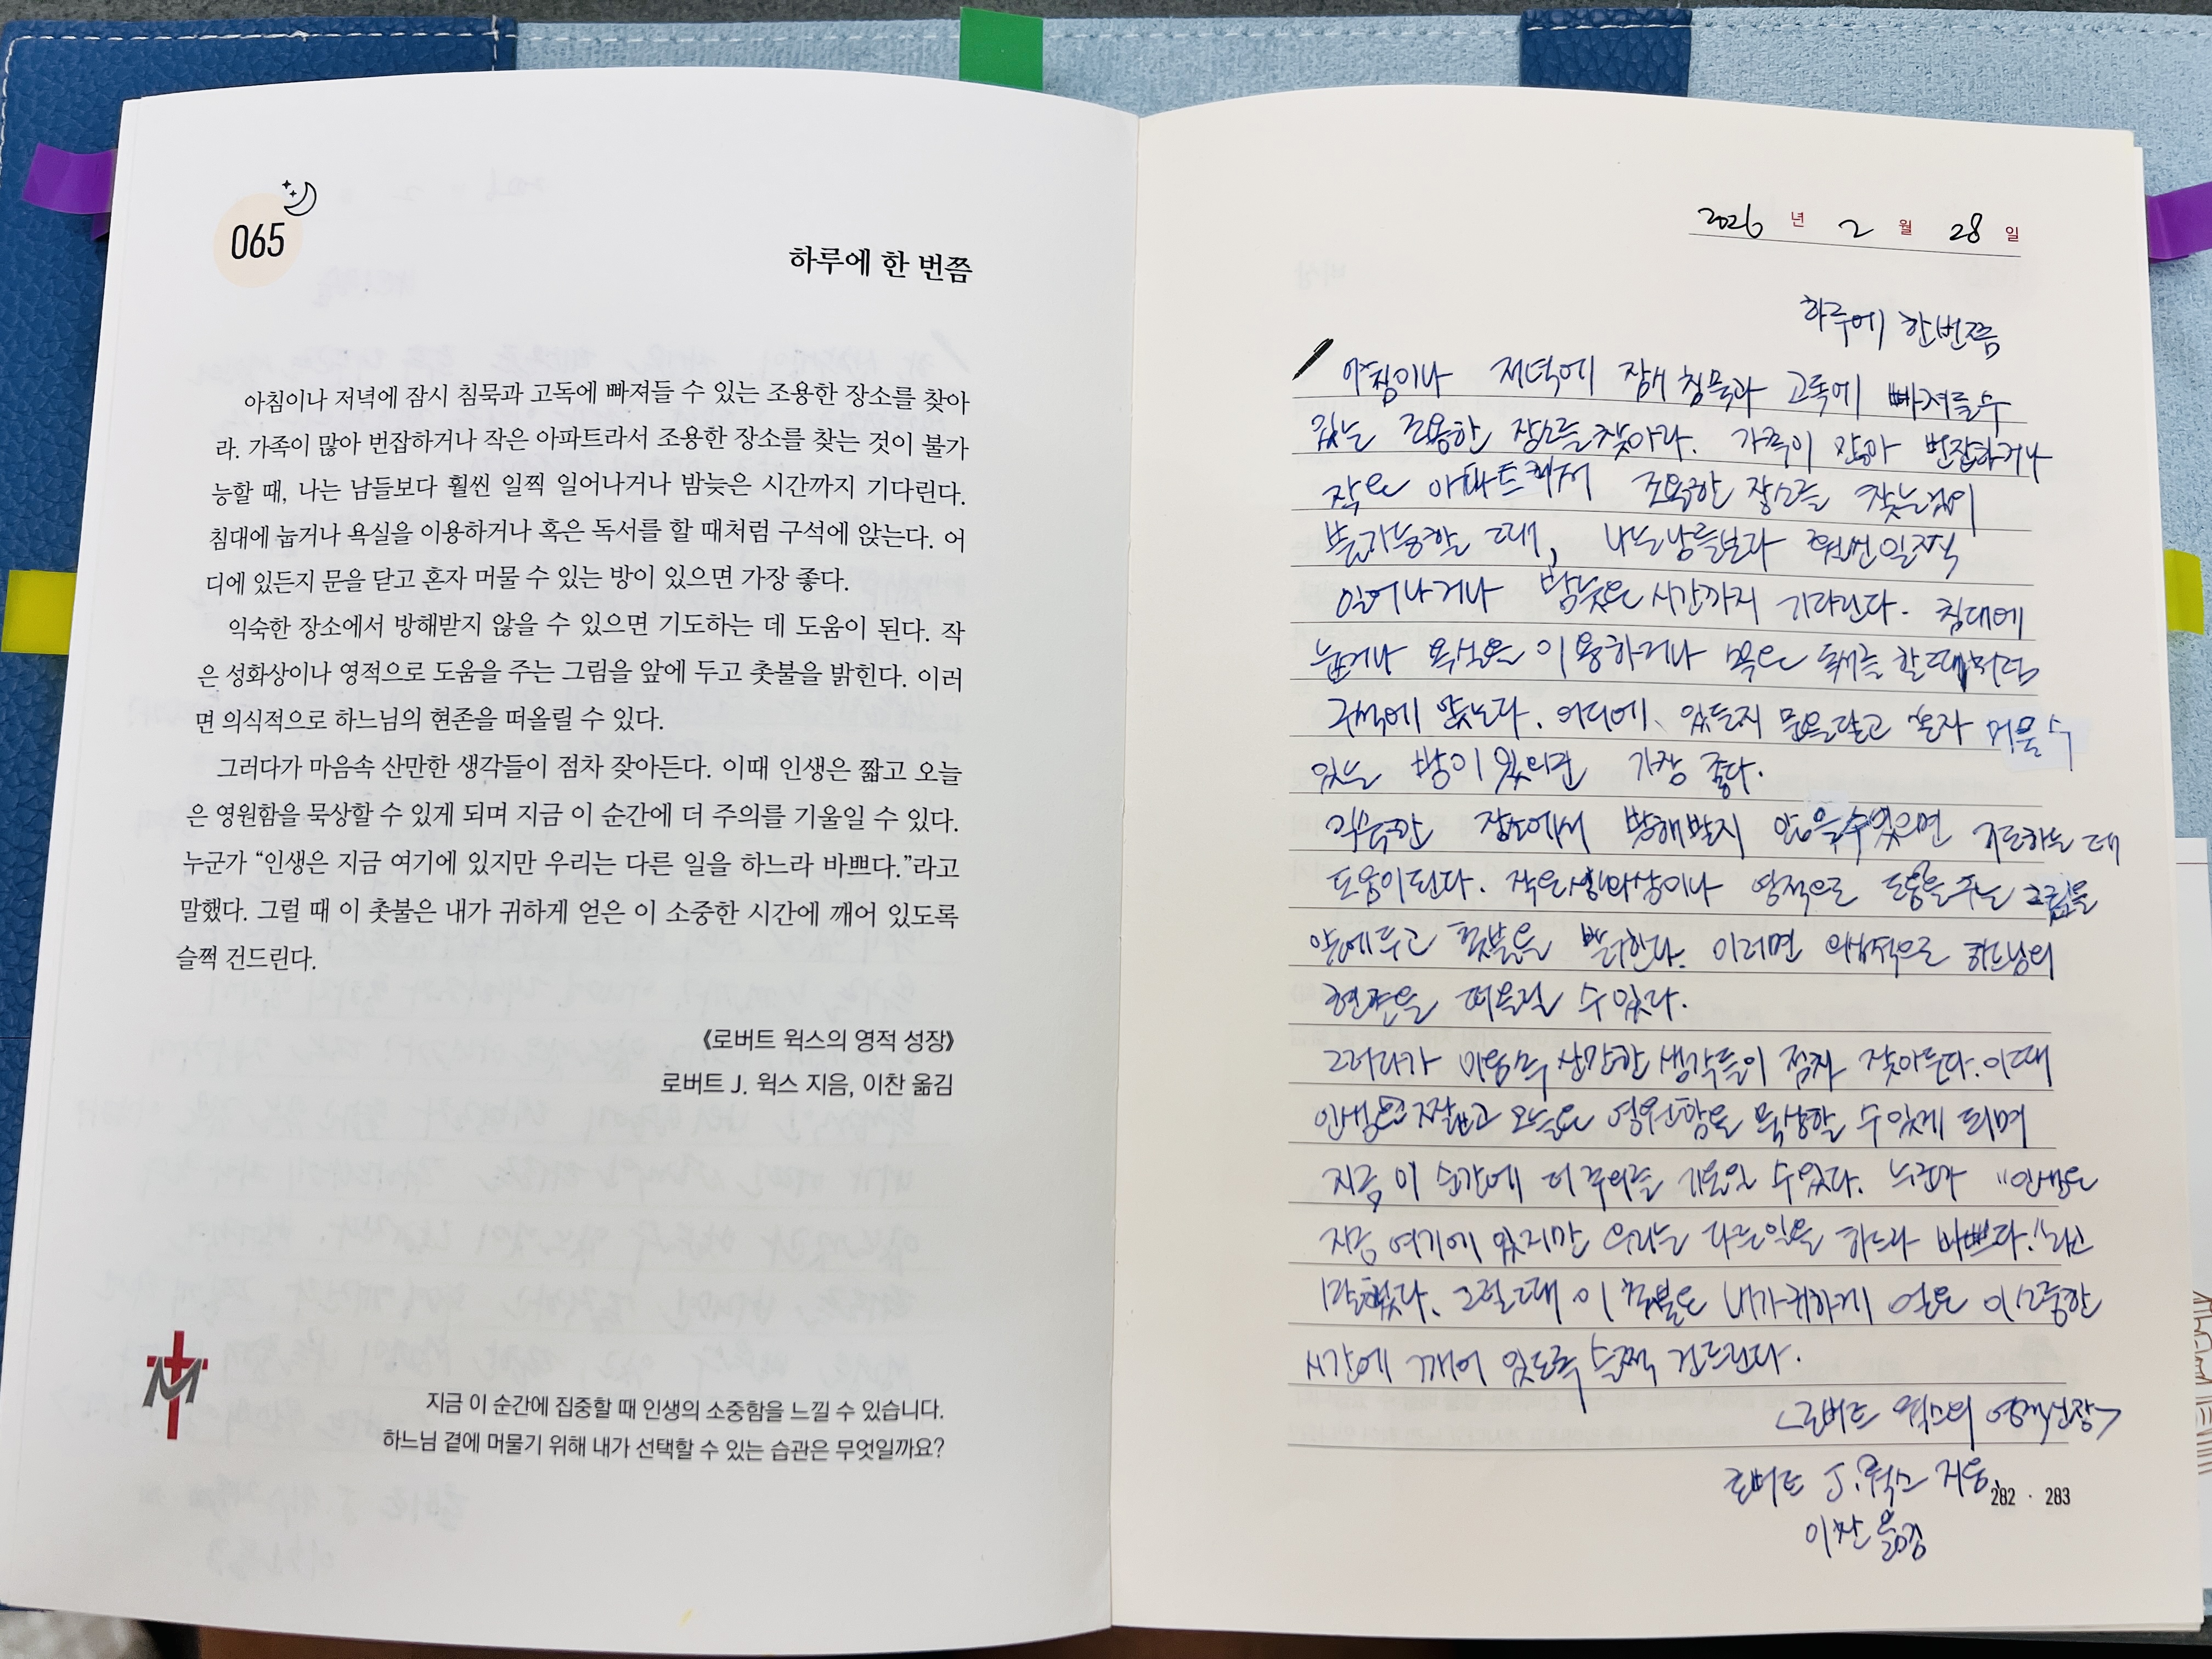 065
하루에 한 번쯤
아침이나 저녁에 잠시 침묵과 고독에 빠져들 수 있는 조용한 장소를 찾아
라. 가족이 많아 번잡하거나 작은 아파트라서 조용한 장소를 찾는 것이 불가
능할 때, 나는 남들보다 훨씬 일찍 일어나거나 밤늦은 시간까지 기다린다.
침대에 눕거나 욕실을 이용하거나 혹은 독서를 할 때처럼 구석에 앉는다. 어
디에 있든지 문을 닫고 혼자 머물 수 있는 방이 있으면 가장 좋다.
익숙한 장소에서 방해받지 않을 수 있으면 기도하는 데 도움이 된다. 작
은 성화상이나 영적으로 도움을 주는 그림을 앞에 두고 촛불을 밝힌다. 이러
면 의식적으로 하느님의 현존을 떠올릴 수 있다.
그러다가 마음속 산만한 생각들이 점차 잦아든다. 이때 인생은 짧고 오늘
은 영원함을 묵상할 수 있게 되며 지금 이 순간에 더 주의를 기울일 수 있다.
누군가 “인생은 지금 여기에 있지만 우리는 다른 일을 하느라 바쁘다.”라고
말했다. 그럴 때 이 촛불은 내가 귀하게 얻은 이 소중한 시간에 깨어 있도록
슬쩍 건드린다.
《로버트 윅스의 영적 성장》
로버트 J. 윅스 지음, 이찬 옮김
지금 이 순간에 집중할 때 인생의 소중함을 느낄 수 있습니다.
하느님 곁에 머물기 위해 내가 선택할 수 있는 습관은 무엇일까요?
2026 년 2 월 28 일
하루에 한번쯤
아침이나 저녁에 잠시 침묵과 고독에 빠져들수
있는 조용한 장소를 찾아라. 가족이 많아 번잡하거나
작은 아파트라서 조용한 장소를 찾는것이
불가능할 때, 나는 남들보다 훨씬 일찍
일어나거나 밤늦은 시간까지 기다린다. 침대에
눕거나 욕실을 이용하거나 혹은 독서를 할때처럼
구석에 앉는다. 어디에 있든지 문을닫고 혼자 머물 수
있는 방이 있으면 가장 좋다.
익숙한 장소에서 방해받지 않을 수있으면 기도하는 데
도움이된다. 작은성화상이나 영적으로 도움을 주는 그림을
앞에두고 촛불을 밝힌다. 이러면 의식적으로 하느님의
현존을 떠올릴 수 있다.
그러다가 마음속 산만한 생각들이 점차 잦아든다. 이때
인생은 짧고 오늘은 영원함을 묵상할 수있게 되며
지금 이 순간에 더 주의를 기울일 수있다. 누군가 "인생은
지금 여기에 있지만 우리는 다른일을 하느라 바쁘다."라고
말했다. 그럴때 이 촛불은 내가귀하게 얻은 이소중한
시간에 깨어 있도록 슬쩍 건드린다.
<로버트 윅스의 영적성장>
로버트 J. 윅스 지음,
282 · 283
이찬 옮김